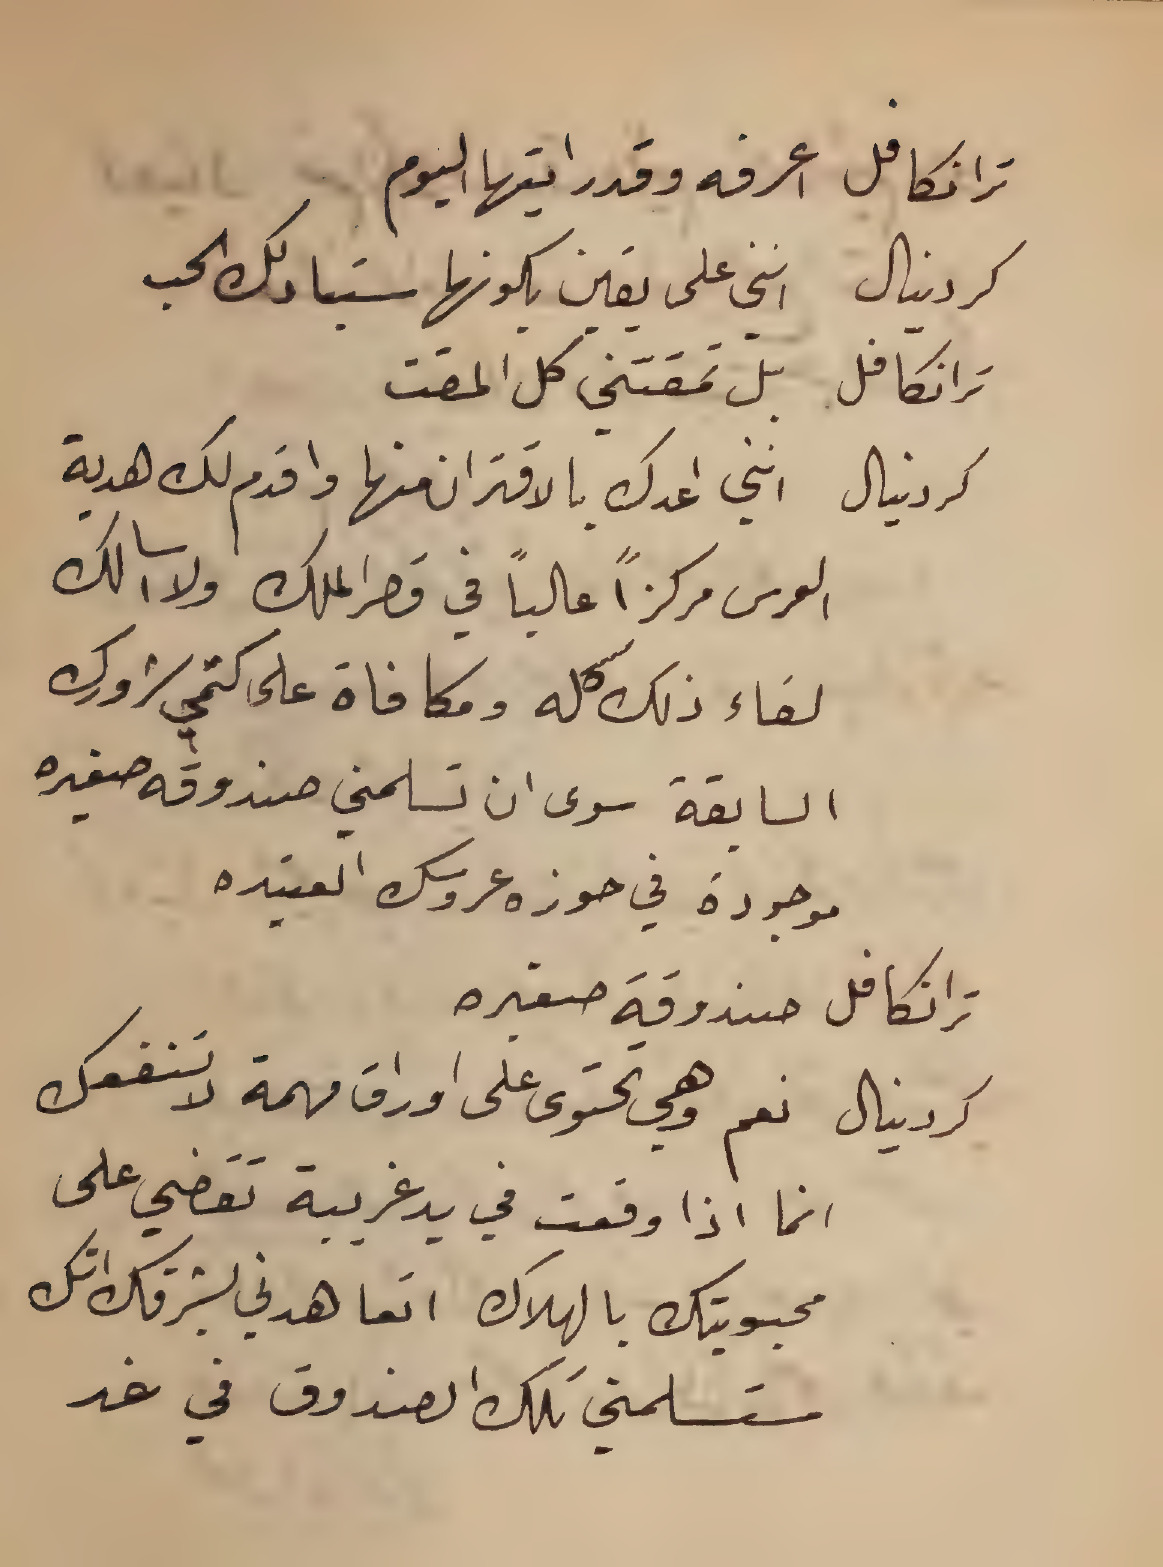 ترانكافل اعرفه وقد رايتها اليوم
كردينال انني على يقين بكونها ستبادلك الحب
ترانكافل بل تمقتني كل المقت
كردينال انني اعدك بالاقتران منها واقدم لك هدية
العرس مركزاً عالياً في قصر الملك ولا اسالك
لقاء ذلك كله ومكافاة على كتمي شرورك
السابقة سوى ان تسلمني صندوقه صغيره
موجودة في حوزه عروسك العتيده
ترانكافل صندوقة صغيره
كردينال نعم وهي تحتوى على اوراق مهمة لا تنفعك
انما اذا وقعت في يد غريبة تقضي على
محبوبتك بالهلاك اتعاهدني بشرفك انك
ستسلمني تلك الصندوق في غد